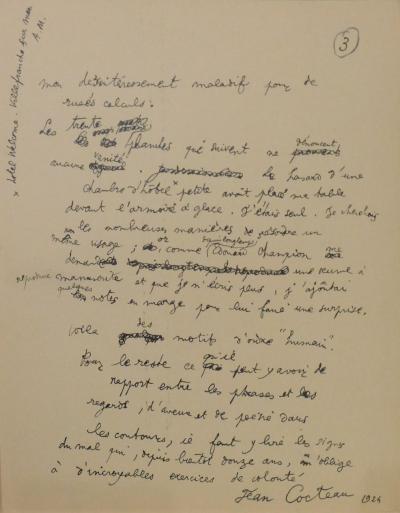 3
mon désintéressement maladif pour de
rusés calculs.
Les trente
planches qui suivent ne dénoncent
aucune vanité, Le hasard d'une
chambre d'hôtel* petite avait placé ma table
devant l'armoire à glace. J'étais seul. Je cherchais
les nombreuses manières de résoudre un
même visage ; or, comme Edouard Champion me
demande depuis longtemps une œuvre à
reproduire manuscrite et que je n'écris plus, j'ajoutai
quelques notes en marge pour lui faire une surprise.
Voilà des motifs d'ordre "humain".
Pour le reste ce qu'il peut y avoir de
rapport entre les phrases et les
regards, d'aveux et de poésie dans
les contours, il faut y lire les signes
du mal qui, depuis bientôt douze ans, m'oblige
à d'incroyables exercices de volonté
Jean Cocteau 1924
* Hotel Welcome. Villefranche sur mer
A. M.